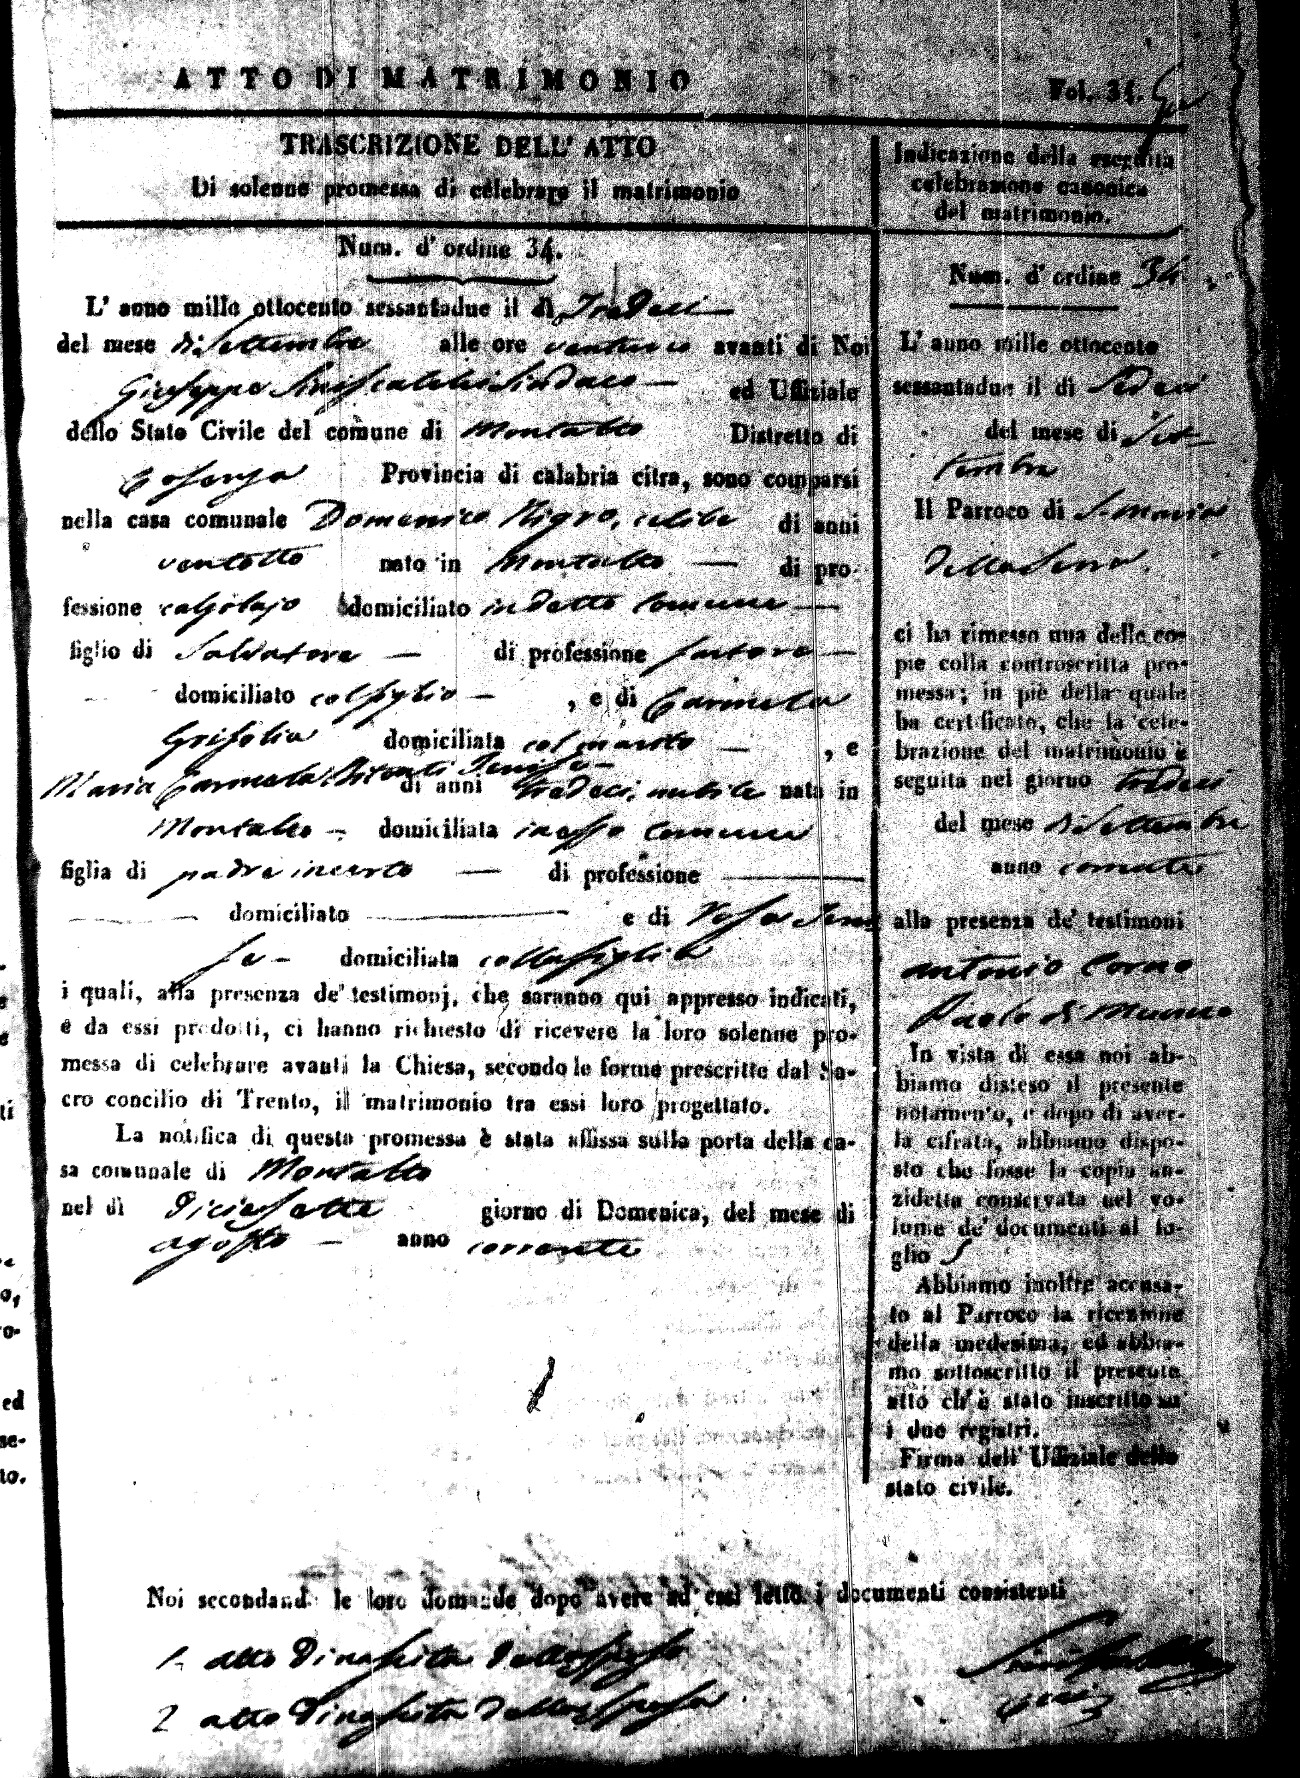 ATTO DI MATRIMONIO
Fol. 34.
TRASCRIZIONE DELL' ATTO
Di solenne promessa di celebrare il matrimonio
Num. d' ordine 34.
L' anno mille ottocento sessantadue il dì Tredeci
del mese di Settembre alle ore avanti di Noi
Giuseppe Siniscalchi Sindaco ed Uffiziale
dello Stato Civile del comune di Montalto Distretto di
Cosenza Provincia di calabria citra, sono comparsi
nella casa comunale Domenico Nigro, celibe di anni
ventotto nato in Montalto di pro-
fessione calzolajo domiciliato in detto Comune
figlio di Salvatore di professione sartore
domiciliato col figlio , e di Carmela
Grisolia domiciliata col marito , e
Maria Carmela
di anni tredeci, nubile nata in
Montalto domiciliata in esso Comune
figlia di padre incerto di professione
domiciliato e di Rosa
domiciliata colla figlia
i quali, alla presenza de' testimonj, che saranno qui appresso indicati,
e da essi prodotti, ci hanno richiesto di ricevere la loro solenne pro-
messa di celebrare avanti la Chiesa, secondo le forme prescritte dal Sa-
cro concilio di Trento, il matrimonio tra essi loro progettato.
La notifica di questa promessa è stata affissa sulla porta della ca-
sa comunale di Montalto
nel dì Diciassette giorno di Domenica, del mese di
agosto anno corrente
Indicazione della eseguita
celebrazione canonica
del matrimonio.
Num. d' ordine 34
L' anno mille ottocento
sessantadue il dì Sedeci
del mese di Set-
tembre
Il Parroco di S. Maria
della Serra.
ci ha rimesso una delle co-
pie colla controscritta pro-
messa; in piè della quale
ha certificato, che la cele-
brazione del matrimonio è
seguita nel giorno tredeci
del mese di Settembre
anno corrente
alla presenza de' testimoni
Antonio Corno
Paolo di Munno
In vista di essa noi ab-
biamo disteso il presente
notamento, e dopo di aver-
la cifrata, abbiamo dispo-
sto che fosse la copia an-
zidetta conservata nel vo-
lume de' documenti al fo-
glio
Abbiamo inoltre accusa-
to al Parroco la ricezione
della medesima, ed abbia-
mo sottoscritto il presente
atto ch' è stato inscritto su
i due registri.
Firma dell' Uffiziale dello
stato civile.
Noi secondand le loro domande dopo avere ad essi letto i documenti consistenti
1. atto di nascita dello sposo
2 atto di nascita della sposa